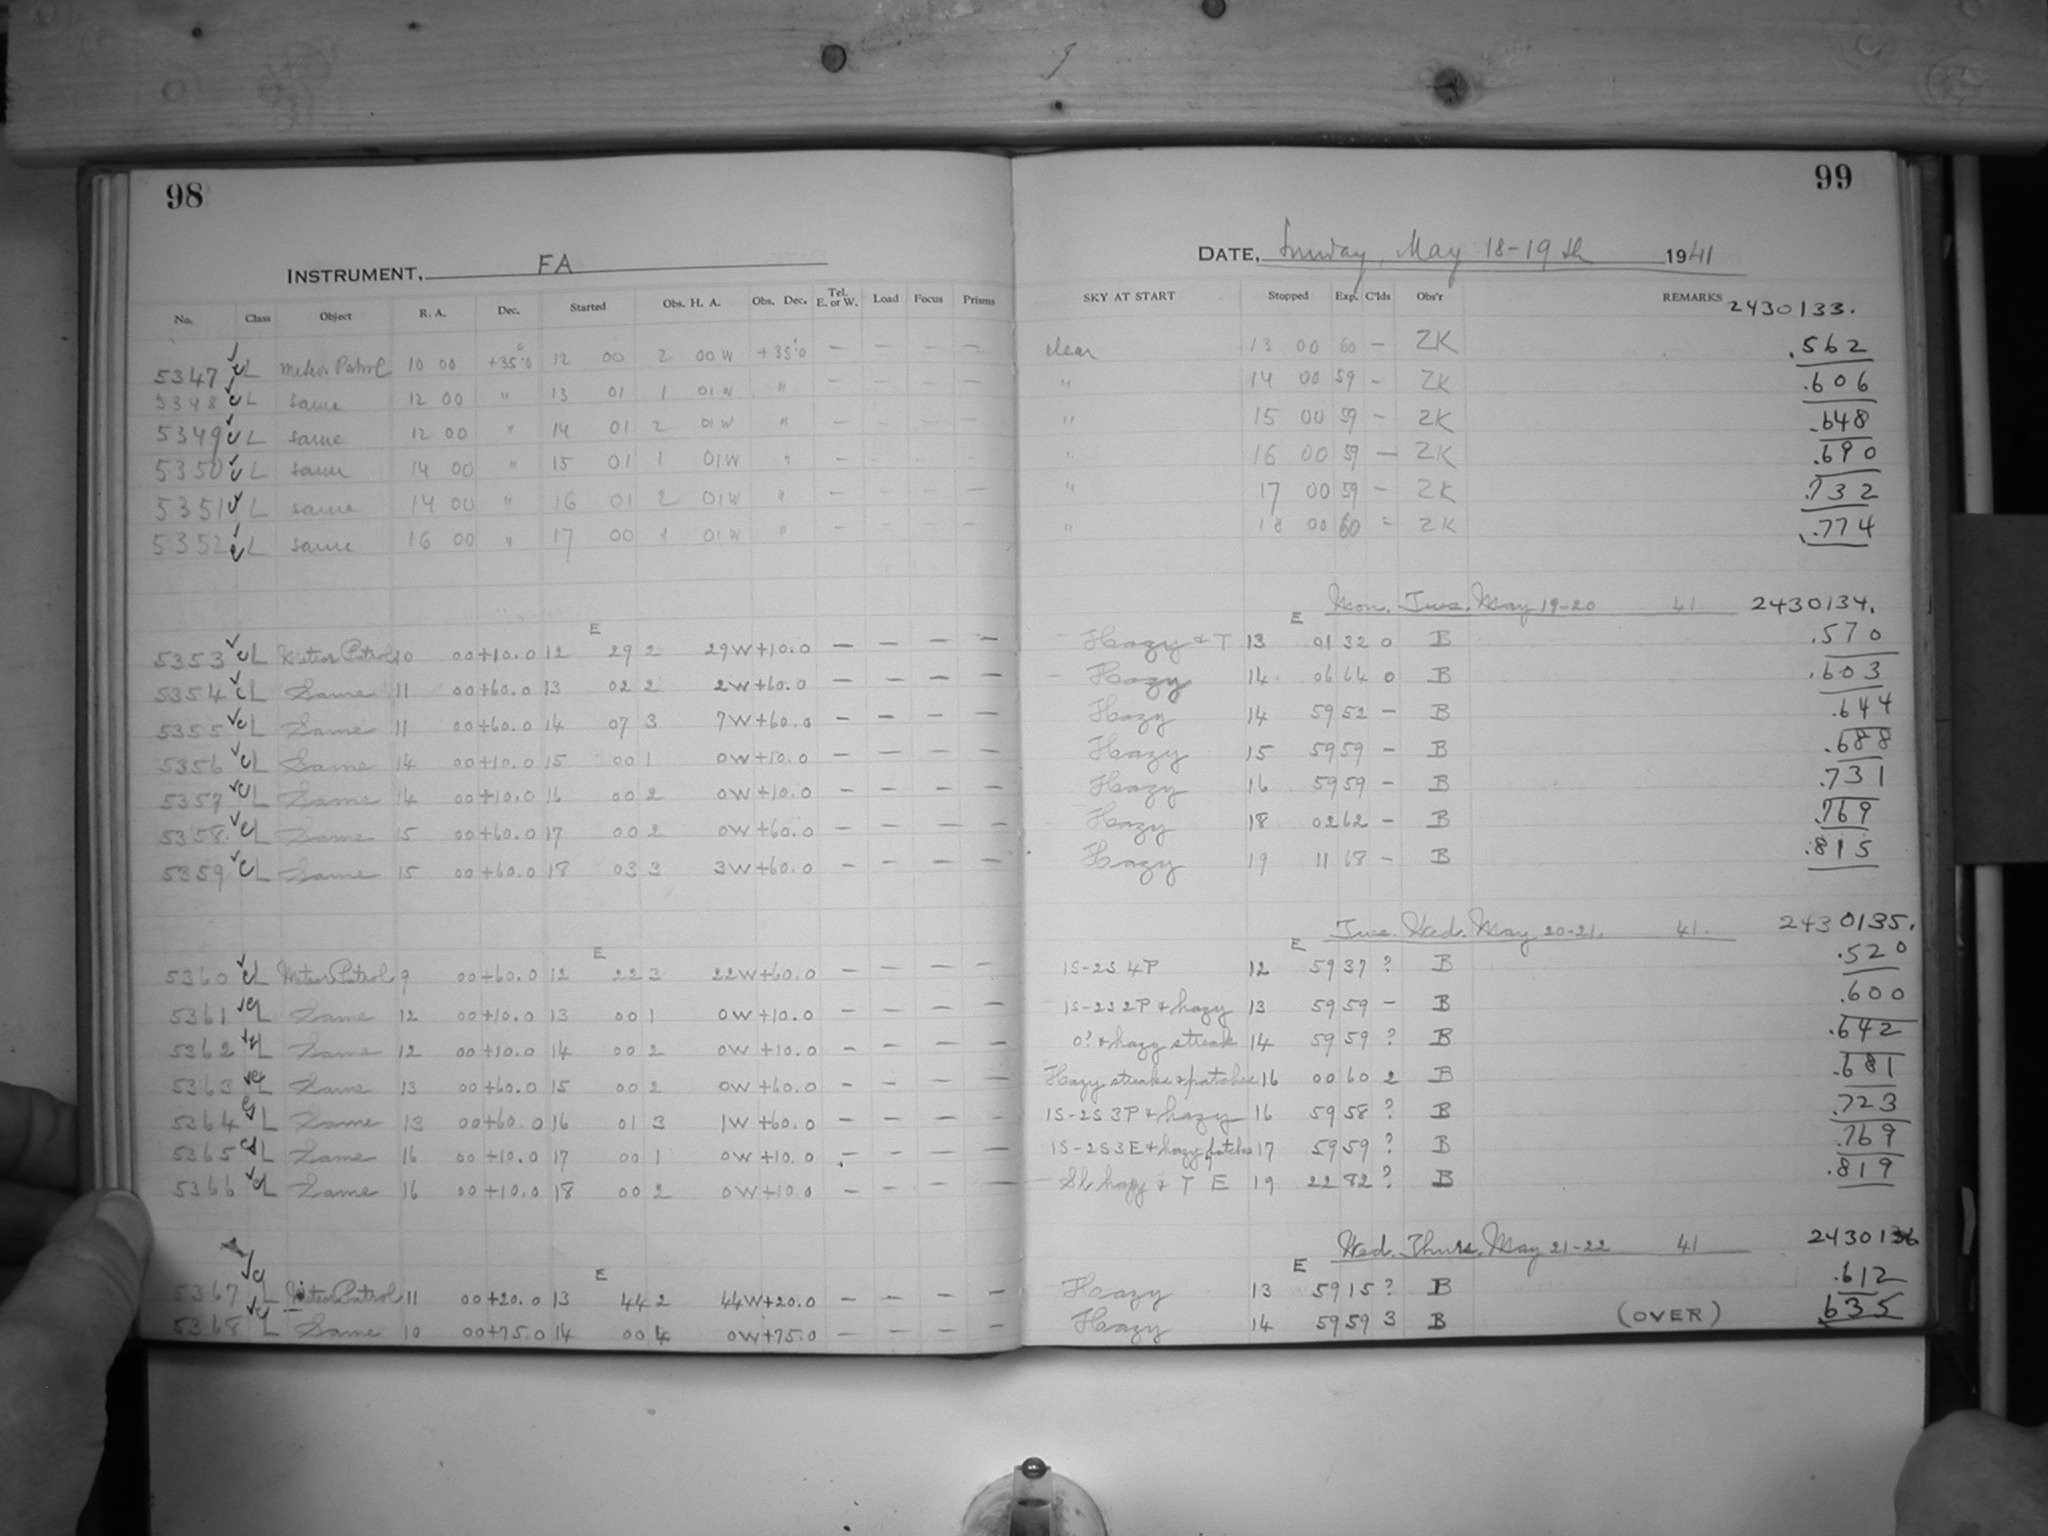 98
INSTRUMENT, FA
No. Class Object R. A. Dec. Started Obs. H. A. Obs. Dec. Tel. E. or W. Load Focus Prisms
5347 L Meteor Patrol 10 00 +35°.0 12 00 2 00 W +35°.0 — — — —
5348 L same 12 00 " 13 01 1 01 W " — — — —
5349 L same 12 00 " 14 01 2 01 W " — — — —
5350 L same 14 00 " 15 01 1 01 W " — — — —
5351 L same 14 00 " 16 01 2 01 W " — — — —
5352 L same 16 00 " 17 00 1 01 W " — — — —
E
5353 CL Meteor Patrol 10 00 +10.0 12 29 2 29W +10.0 — — — —
5354 CL Same 11 00 +60.0 13 02 2 2W +60.0 — — — —
5355 CL Same 11 00 +60.0 14 07 3 7W +60.0 — — — —
5356 CL Same 14 00 +10.0 15 00 1 0W +10.0 — — — —
5357 CL Same 14 00 +10.0 16 00 2 0W +10.0 — — — —
5358 CL Same 15 00 +60.0 17 00 2 0W +60.0 — — — —
5359 CL Same 15 00 +60.0 18 03 3 3W +60.0 — — — —
E
5360 CL Meteor Patrol 9 00 +60.0 12 22 3 22W +60.0 — — — —
5361 CL Same 12 00 +10.0 13 00 1 0W +10.0 — — — —
5362 L Same 12 00 +10.0 14 00 2 0W +10.0 — — — —
5363 CL Same 13 00 +60.0 15 00 2 0W +60.0 — — — —
5364 CL Same 13 00 +60.0 16 01 3 1W +60.0 — — — —
5365 CL Same 16 00 +10.0 17 00 1 0W +10.0 — — — —
5366 CL Same 16 00 +10.0 18 00 2 0W +10.0 — — — —
E
5367 CL Meteor Patrol 11 00 +20.0 13 44 2 44W +20.0 — — — —
5368 CL Same 10 00 +75.0 14 00 4 0W +75.0 — — — —
99
DATE, Sunday, May 18-19th 1941
SKY AT START Stopped Exp. C'lds Obs'r REMARKS 2430133.
clear 13 00 60 — ZK .562
" 14 00 59 — ZK .606
" 15 00 59 — ZK .648
" 16 00 59 — ZK .690
" 17 00 59 — ZK .732
" 18 00 60 = ZK .774
E Mon. Tues. May 19-20 41 2430134.
Hazy & T 13 01 32 0 B .570
Hazy 14 06 64 0 B .603
Hazy 14 59 52 — B .644
Hazy 15 59 59 — B .688
Hazy 16 59 59 — B .731
Hazy 18 02 62 — B .769
Hazy 19 11 68 — B .815
E Tues. Wed. May 20-21. 41. 2430135.
1S-2S 4P 12 59 37 ? B .520
1S-2S 2P & hazy 13 59 59 — B .600
0? & hazy streak 14 59 59 ? B .642
Hazy streaks & patches 16 00 60 2 B .681
1S-2S 3P & hazy 16 59 58 ? B .723
1S-2S 3E & hazy patches 17 59 59 ? B .769
Sl. hazy & T E 19 22 82 ? B .819
E Wed. Thurs. May 21-22 41 2430136
Hazy 13 59 15 ? B .612
Hazy 14 59 59 3 B (OVER) 635